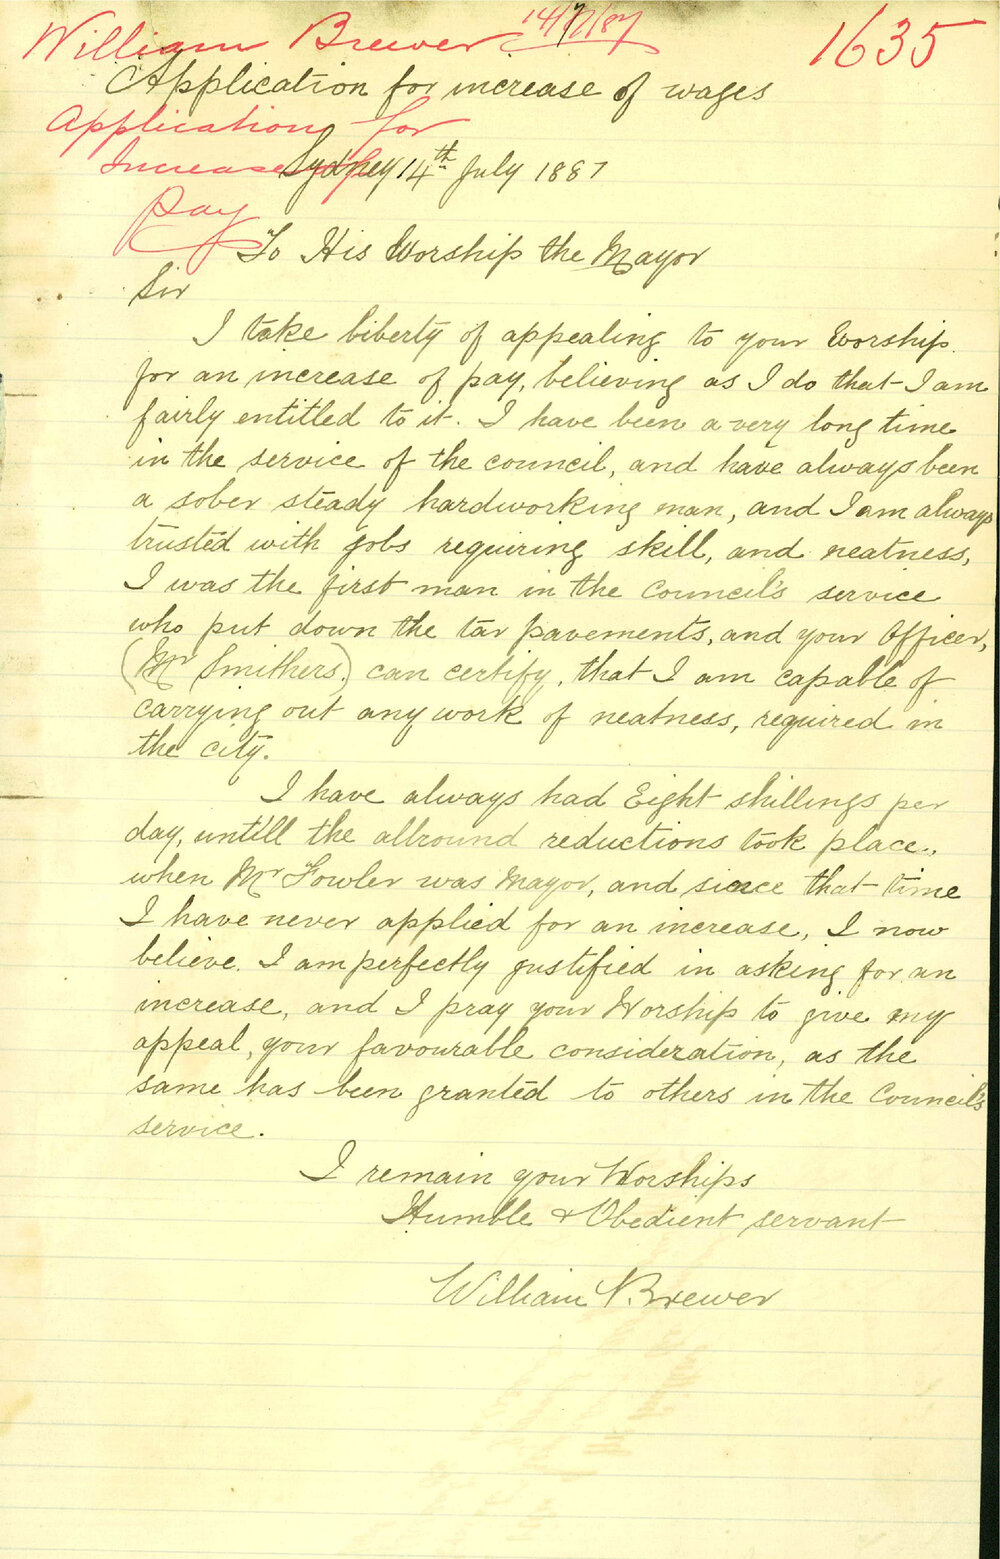 William Brewer 14/7/87 1635
Application for increase of wages
Application for
Increase of
Sydney 14th July 1887
pay
To His Worship the Mayor
Sir
I take liberty of appealing to your Worship
for an increase of pay, believing as I do that I am
fairly entitled to it. I have been a very long time
in the service of the council, and have always been
a sober steady hardworking man, and I am always
trusted with jobs requiring skill, and neatness,
I was the first man in the Council's service
who put down the tar pavements, and your Officer,
(Mr Smithers,) can certify, that I am capable of
carrying out any work of neatness, required in
the city.
I have always had Eight shillings per
day, untill the allround reductions took place,
when Mr Fowler was Mayor, and since that time
I have never applied for an increase, I now
believe I am perfectly justified in asking for an
increase, and I pray your Worship to give my
appeal, your favourable consideration, as the
same has been granted to others in the Council's
service.
I remain your Worships
Humble & Obedient servant
William Brewer